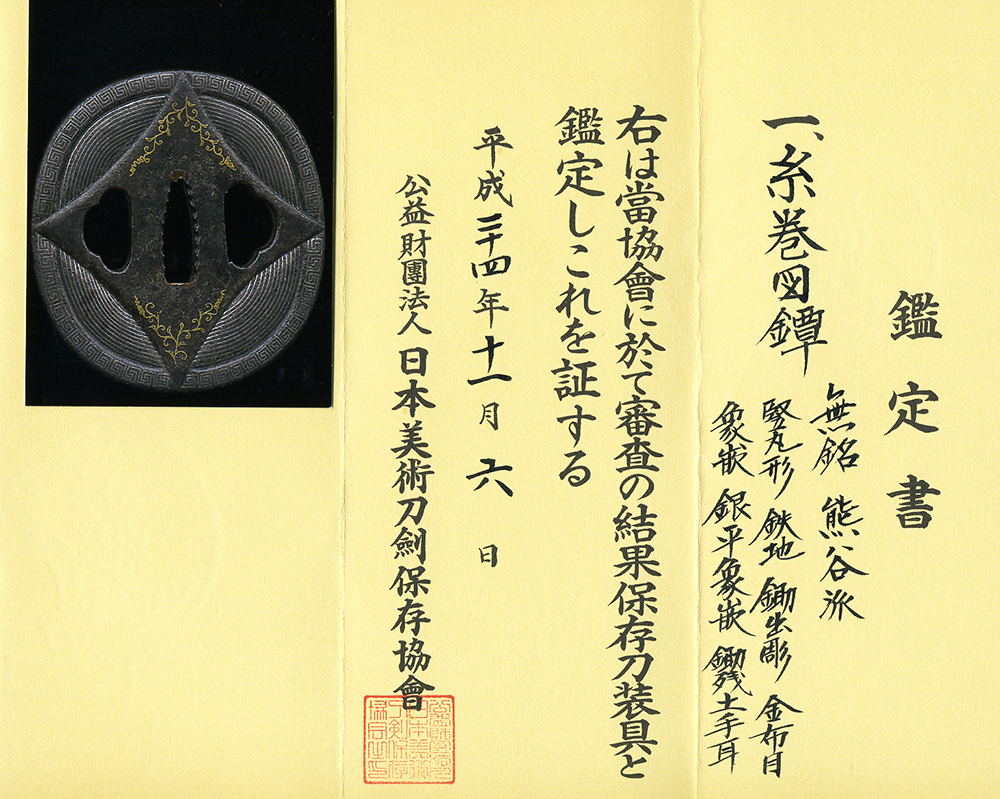 鑑定書
一、糸巻図鐔
無銘 熊谷派
竪丸形 鉄地 鋤出彫 金布目
象嵌 銀平象嵌 鋤残土手耳
右は當協會に於て審査の結果保存刀装具と
鑑定しこれを証する
平成二十四年十一月六日
公益財團法人日本美術刀劍保存協會